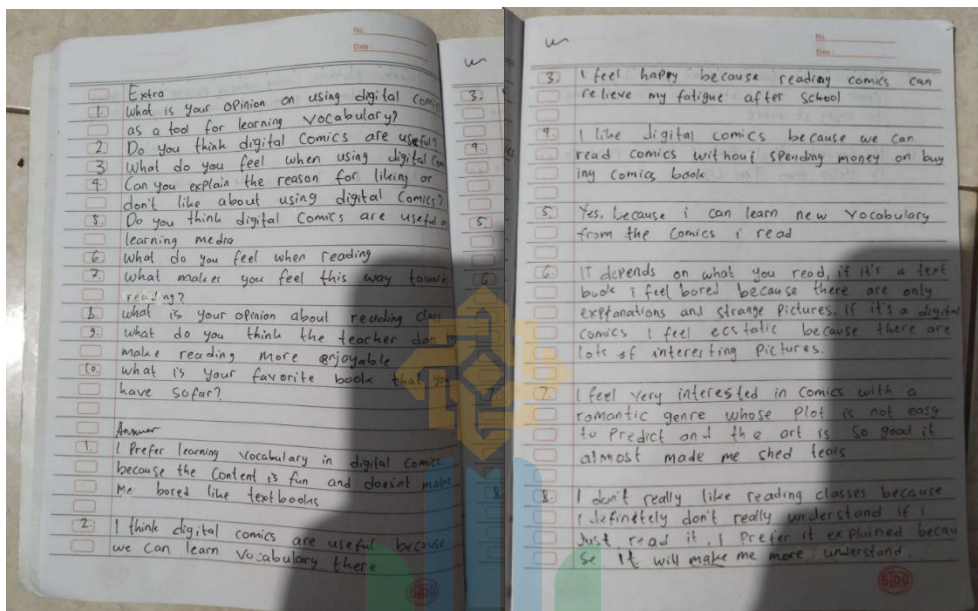 No.
Date:
Extra
1. What is your opinion on using digital comic
as a tool for learning vocabulary?
2. Do you think digital comics are useful?
3. What do you feel when using digital
4. Can you explain the reason for liking or
don't like about using digital comics?
5. Do you think digital comics are useful
learning media
6. What do you feel when reading
7. What makes you feel this way
reading?
8. what is your opinion about reading
9. what do you think the teacher
make reading more enjoyable
10. what is your favorite book that you
have so far?
Answer
1. I Prefer learning vocabulary in digital comic
because the content is fun and doesint
me bored like textbooks
2 I think digital comics are useful because
we can learn vocabulary there
SIDU
3.
9.
5.
6.
7
8.
No.
Date:
3. I feel happy because reading comics can
relieve my fatigue after school
9. I like digital comics because we can
read comics without spending money on buy
ing comics book
5. Yes, because i can learn new vocabulary
from the comics i read
6. IT depends on what you read, if it's a text
book i feel bored because there are only
explanations and strange pictures, if it's a digital
comics I feel ecstatic because there are
lots of interesting pictures.
7. I feel very interested in comics with a
romantic genre whose plot is not easy
to predict and the art is so good it
almost made me shed tears
8. I don't really like reading classes because
I definetely don't really understand if i
just read it, I prefer it explained becau
se it will make me more understand.
SIDU